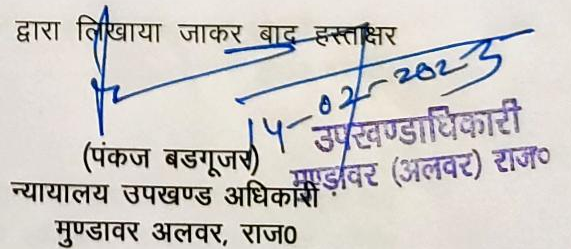 द्वारा लिखाया जाकर बाद हस्ताक्षर
14-02-2023
उपखण्डाधिकारी
मुण्डावर (अलवर) राज०
(पंकज बडगूजर)
न्यायालय उपखण्ड अधिकारी
मुण्डावर अलवर, राज0